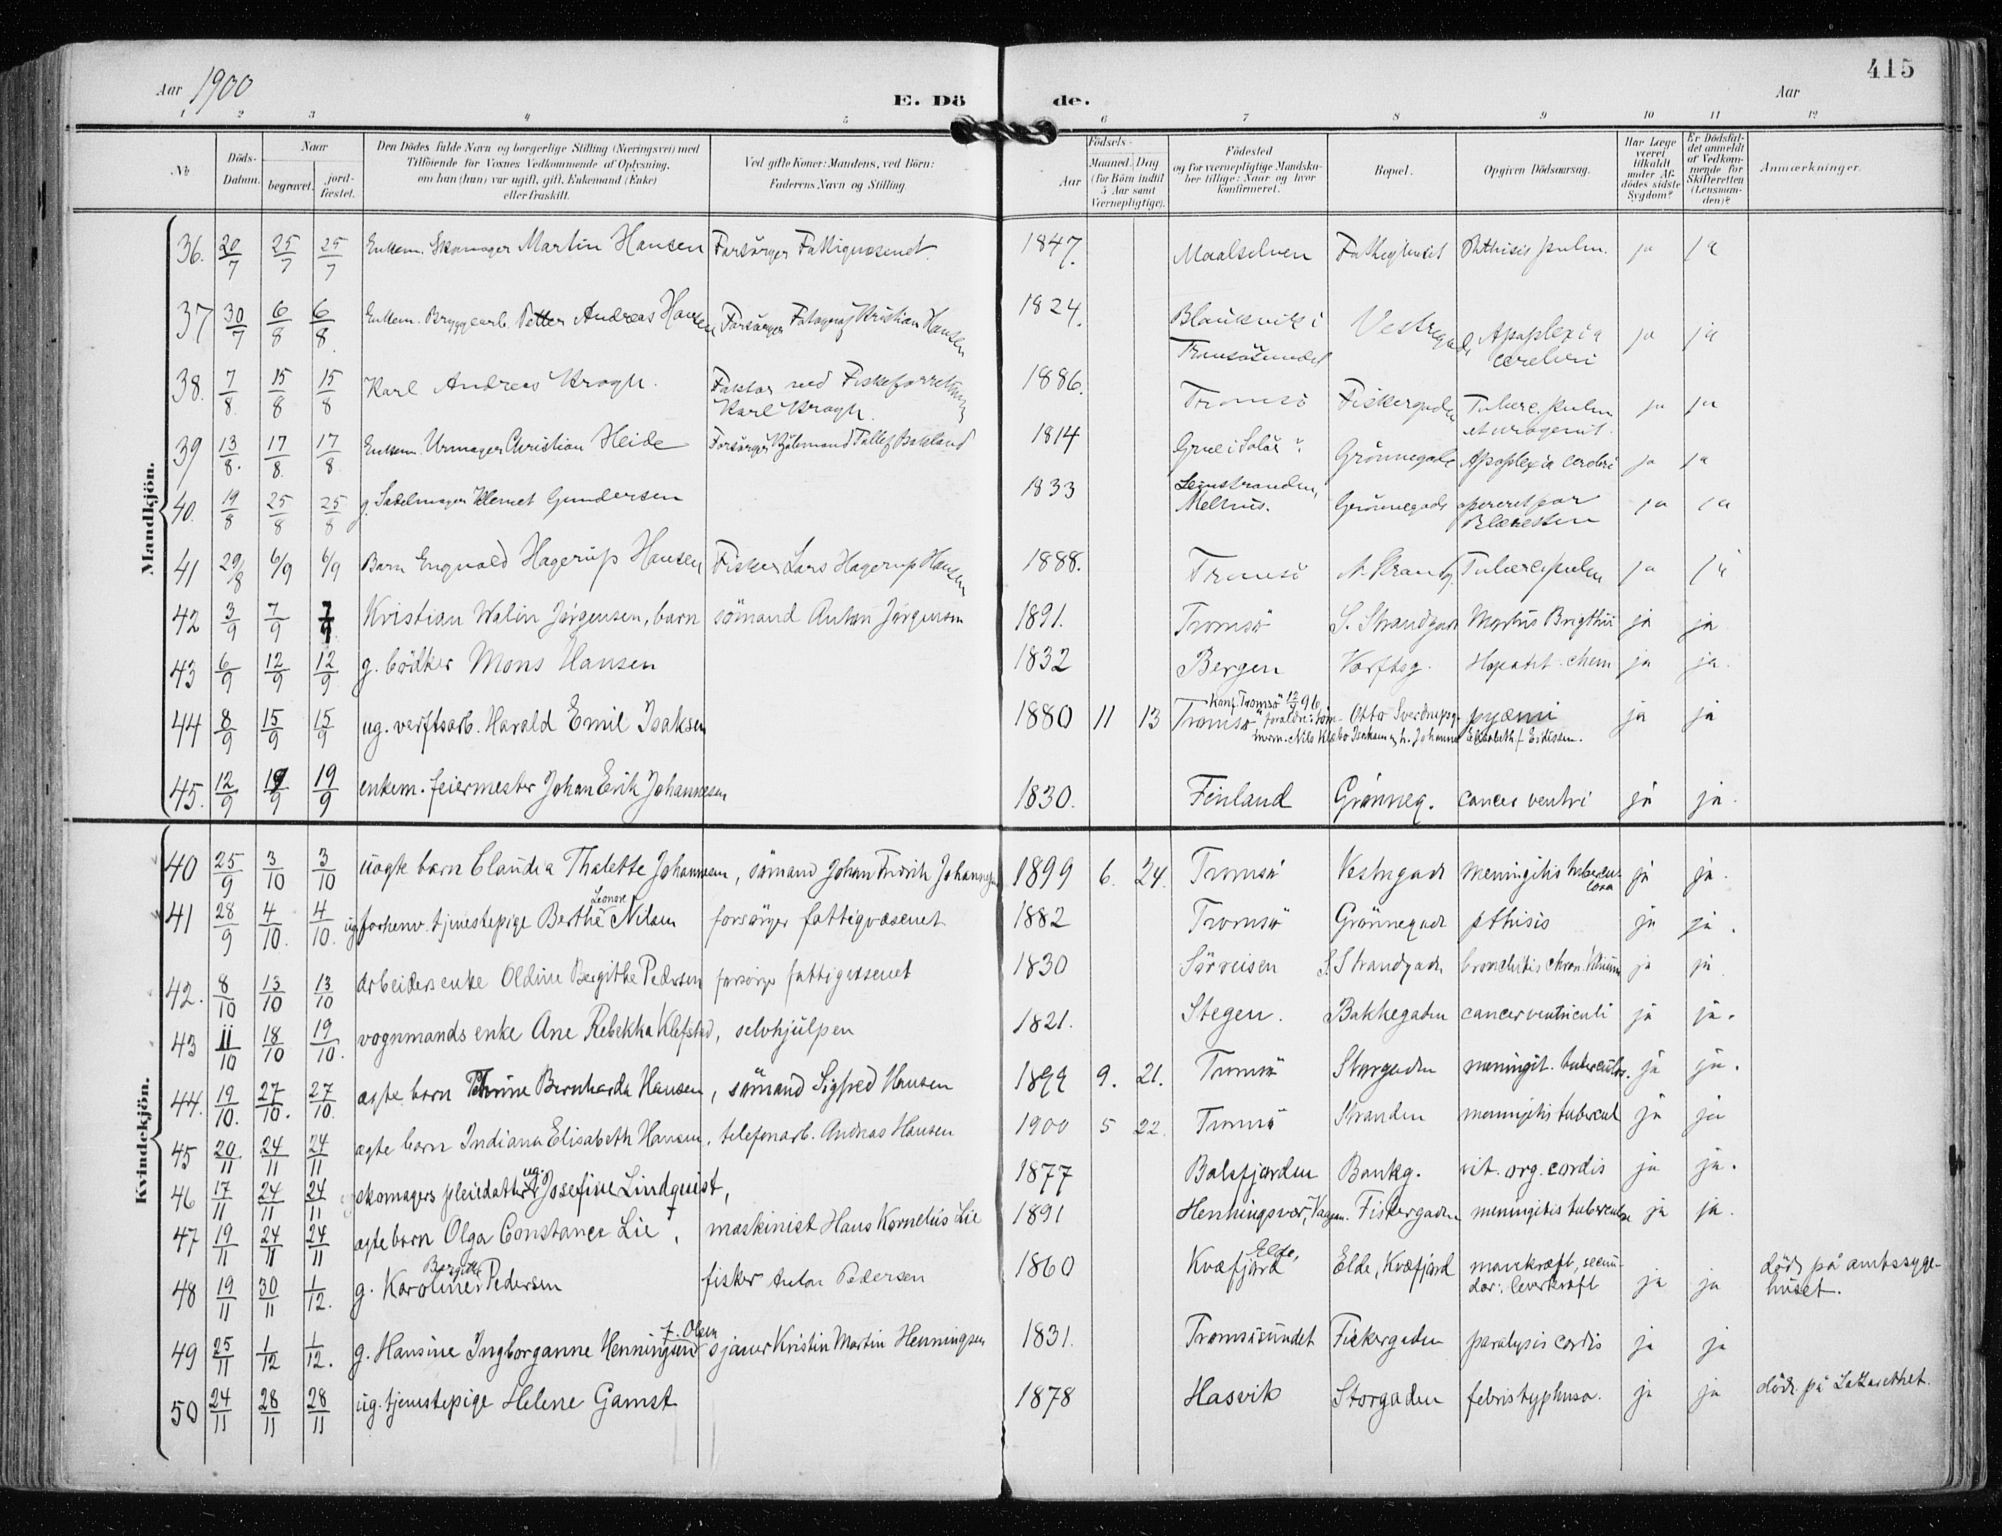 415
Aar 1900
E. Dö de.
Aar
1 2 3 4 5 6 7 8 9 10 11 12
No
Döds-Datum.
Naar
begravet.
jord-fæstet.
Den Dödes fulde Navn og borgerlige Stilling (Næringsvei) med
Tilföiende for Voxnes Vedkommende af Oplysning,
om han (hun) var ugift, gift, Enkemand (Enke)
eller fraskilt.
Ved gifte Koner: Mandens, ved Börn:
Faderens Navn og Stilling.
Födsels-
Aar
Maaned. Dag
(for Börn indtil
5 Aar samt
Værnepligtige).
Födested
og for værnepligtige Mandska-
ber tillige: Naar og hvor
konfirmeret.
Bopæl.
Opgiven Dödsaarsag.
Har Læge
været
tilkaldt
under Af-
dödes sidste
Sygdom?
Er Dödsfal-
det anmeldt
af Vedkom-
mende for
Skifteretten
(Lensman-
den)?
Anmærkninger.
Mandkjön.
36. 20/7 25/7 25/7 Enkem. Skomager Martin Hansen Forsörger Fattigvæsenet. 1847. Maalselven Fattighuset Phthisis pulm. ja ja
37 30/7 6/8 6/8. Enkem. Bryggearb. Petter Andreas Hansen Forsörger Fotograf Kristian Hansen 1824. Blaaukvik i Tromsösundet Vestregade Apoplexia cerebri ja ja
38. 7/8. 15/8 15/8 Karl Andreas Krogh. Faktor ved Fiskeforretning Karl Krogh. 1886. Tromsö Fiskergaden Tuberc. pulm et urogenit. ja ja
39 13/8. 17/8. 17/8 Enkem. Urmager Christian Heide Forsörger Tollef Bakland 1814 Grue i Solör? Grönnegade Apoplexia cerebri ja ja
40. 19/8 25/8 25/8 g. Sadelmager Klemet Gundersen 1833 Leinstranden, Melhus. Grönnegade opereret for Blæresten ja ja
41 29/8 6/9 6/9 Barn Engvald Hagerup Hansen Fisker Lars Hagerup Hansen 1888. Tromsö N. Strandg. Tuberc. pulm ja ja
42 3/9 7/9 7/9 Kristian Walin Jørgensen, barn sömand Anton Jørgensen 1891. Tromsö S. Strandgade Morbus Brigthii ja ja
43 6/9 12/9 12/9 g. bödker Mons Hansen 1832 Bergen Værftsg. Hepatit. chron ja ja.
44 8/9 15/9 15/9 ug. verftsarb. Harald Emil Isaksen 1880 11 13 Tromsö Otto Sverdrupsg. pyæmi ja ja
konf. Tromsö 96
45. 12/9 19/9 19/9 enkem. feiermester Johan Erik Johannesen 1830. Finland Grønneg. cancer ventri ja ja.
Kvindekjön.
40 25/9 3/10 3/10 uægte barn Claudia Thalette Johannesen, sömand Johan Fridrik Johannesen 1899 6. 24. Tromsö Vestregade meningitis tuberculosa ja ja.
41 28/9 4/10. 4/10. ug. forhenv. tjenestepige Berthe Leonore Nilsen forsörger fattigvæsenet 1882 Tromsö Grönnegade pthisis ja ja.
42. 8/10 13/10 13/10 arbeiders enke Oldine Bergithe Pedersen forsörger fattigvæsenet 1830 Sörreisen S. Strandgade bronchitis chron. ja ja
43 11/10 18/10 19/10. vognmands enke Ane Rebekka Klefstad, selvhjulpen 1821. Stegen. Bakkegaden cancer ventriculi ja ja.
44. 19/10. 27/10. 27/10. ægte barn Thrine Bernharda Hansen, sömand Sigfred Hansen 1899 9. 21. Tromsö Storgaden meningit. tuberculos. ja ja.
45 20/11 24/11 24/11 ægte barn Indiana Elisabeth Hansen, telefonarb. Andreas Hansen 1900 5 22. Tromsö Stranden meningitis tubercul ja ja
46 17/11 24/11 24/11 skomagers pleiedatter ug. Josefine Lindquist, 1877 Balsfjorden Bankg. vit. org. cordis ja ja.
47 19/11 24/11 24/11 ægte barn Olga Constance Lie, maskinist Hans Kornelius Lie 1891 Henningsvær, Vaagan. Fiskergaden meningitis tuberculos ja ja.
48 19/11 30/11 1/12. g. Karoline Bergitte Pedersen fisker Anton Pedersen 1860 Elde, Kvæfjord Elde, Kvæfjord mavekræft, secundær: leverkræft ja ja döde på amtssygehuset.
49 25/11 1/12 1/12. g. Hansine Ingborganne Henningsen f. Olsen sjauer Kristin Martin Henningsen 1831. Tromsösundet Fiskergaden paralysis cordis ja ja
50 24/11 28/11 28/11 ug. tjenestepige Helene Gamst 1878 Hasvik Storgaden febris typhosa. ja ja döde på Lazarethet.